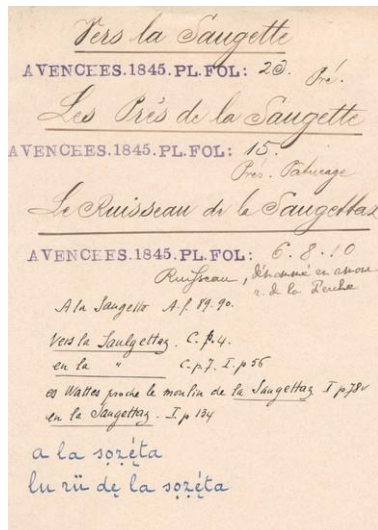 Vers la Saugette
AVENCHES.1845.PL.FOL: 23. Pré.
Les Prés de la Saugette
AVENCHES.1845.PL.FOL: 15.
Prés. Pâturage
Le Ruisseau de la Saugettaz
AVENCHES.1845.PL.FOL: 6.8.10
Ruisseau, dénommé en amont
r. de la Perche
A la Saugetto A.f. 89.90.
Vers la Saulgettaz. C.p.4.
en la " C.p.7. I.p 56
es Wattes proche le moulin de la Saugettaz I p78v
en la Saugettaz. I.p 134
a la sọẓéta
lu rü dę la sọẓéta